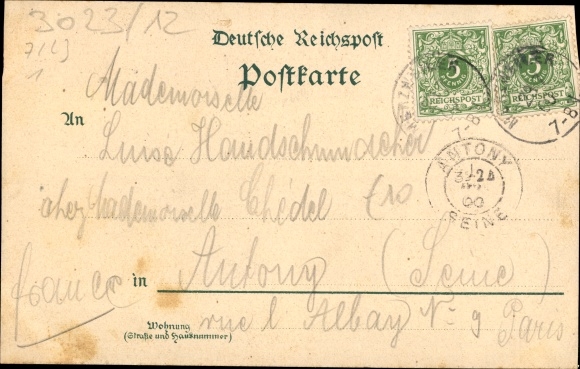 3023/12
Deutsche Reichspost
Postkarte
5
REICHSPOST
5
REICHSPOST
7-8
7-8
ANTONY
SEINE
Mademoiselle
An
Luise Handschumacher
chez Mademoiselle Chédel
in Antony (Seine)
France
Wohnung
(Straße und Hausnummer)
rue l'Abbay No 9 Paris